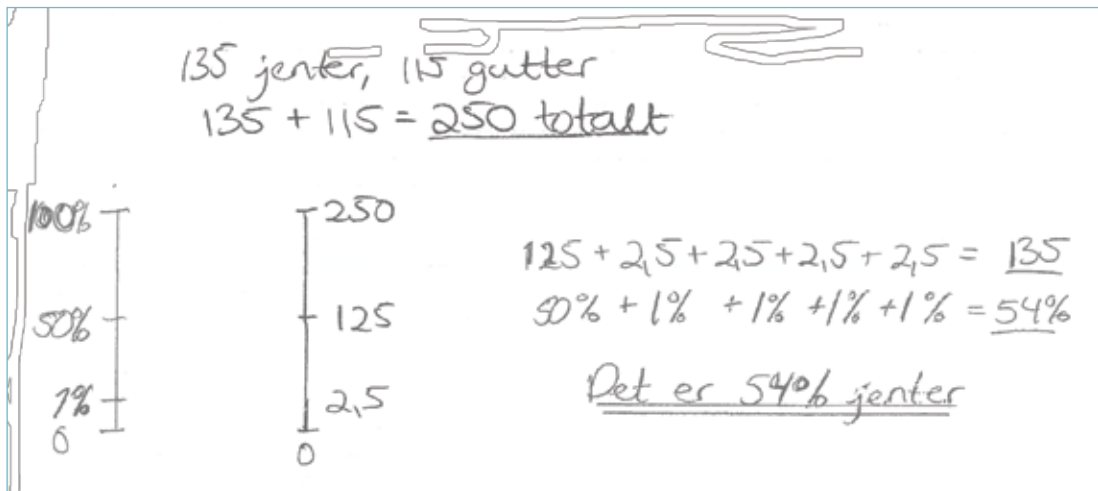 135 jenter, 115 gutter
135 + 115 = 250 totalt
100%
50%
1%
0
250
125
2,5
0
125 + 2,5 + 2,5 + 2,5 + 2,5 = 135
50% + 1% + 1% + 1% + 1% = 54%
Det er 54% jenter